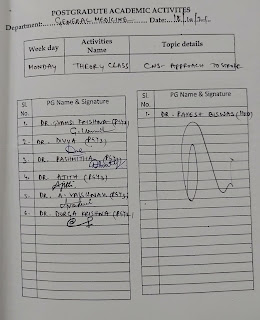 POSTGRADUTE ACADEMIC ACTIVITES
Department:......GENERAL MEDICINE......Date:...
Week day Activities Name Topic details
MONDAY THEORY CLASS CNS- APPROACH TO STROKE
Sl. No. PG Name & Signature
1. DR.
2. DR. DIVYA (PGY3)
3. DR. RASHMITHA
4. DR. AJITH (PGY3)
5. DR. A. VAISHNAVI (PGY2)
6. DR. DURGA KRISHNA (PGY2)
Sl. No. PG Name & Signature
1. DR. RAKESH BISWAS (HOD)